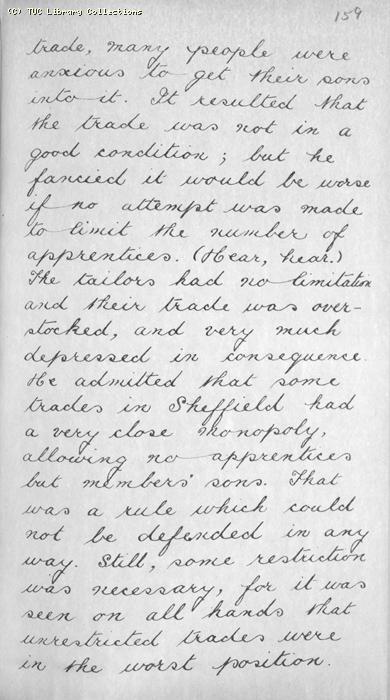 (C) TUC Library Collections
159
trade, many people were
anxious to get their sons
into it. It resulted that
the trade was not in a
good condition; but he
fancied it would be worse
if no attempt was made
to limit the number of
apprentices. (Hear, hear.)
The tailors had no limitation
and their trade was over-
stocked, and very much
depressed in consequence.
He admitted that some
trades in Sheffield had
a very close monopoly,
allowing no apprentices
but members' sons. That
was a rule which could
not be defended in any
way. Still, some restriction
was necessary, for it was
seen on all hands that
unrestricted trades were
in the worst position.